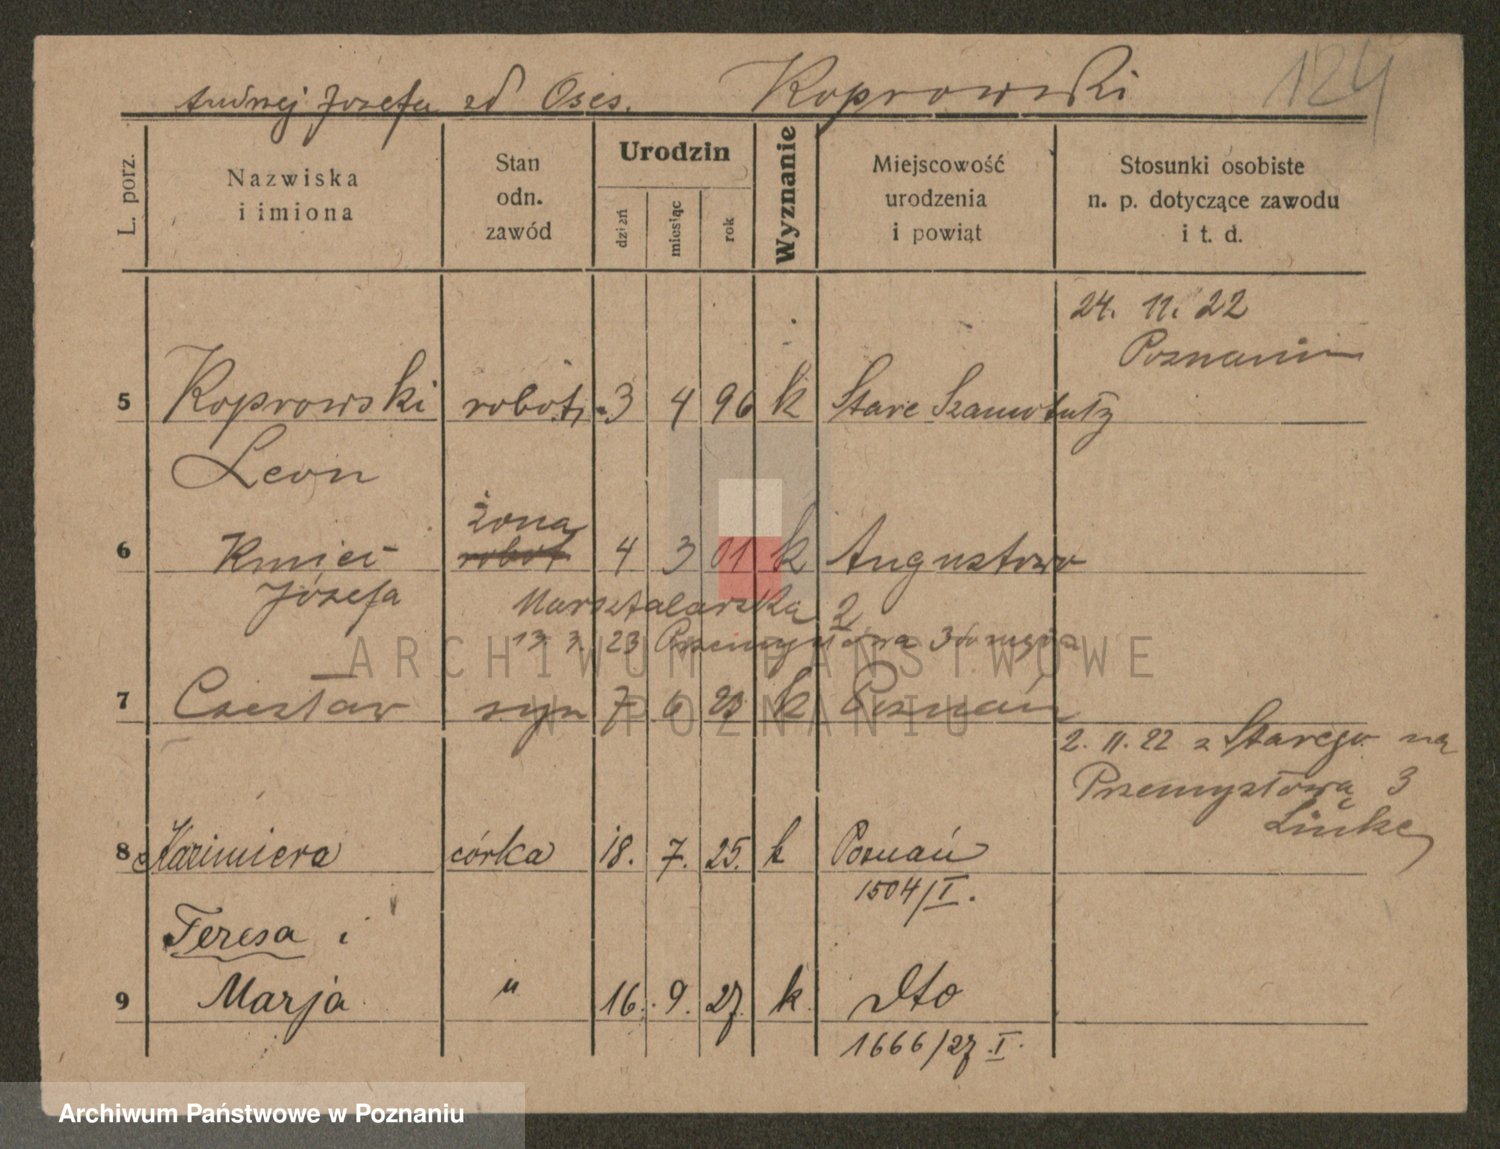 Andrzej Józefa zd Oses. Koprowski 124
L. porz.
Nazwiska
i imiona
Stan
odn.
zawód
Urodzin
dzień
miesiąc
rok
Wyznanie
Miejscowość
urodzenia
i powiąt
Stosunki osobiste
n. p. dotyczące zawodu
i t. d.
24. 11. 22
Poznaniu
5 Koprowski robot, 3 4 96 k Stare Szamotuły
Leon
żona
6 Kmieć robot 4 3 01 k Augustowo
Józefa Marsztalarska 2
13. 3. 23 Przemysłowa 3
ARCHIWUM PAŃSTWOWE
W POZNANIU
7 Czesław syn 7 6 23 k Poznań
2. 11. 22 z Starego na
Przemysłową 3
Linke
8 Kazimiera córka 18. 7. 25. k Poznań
1504/I.
Teresa i
9 Marja " 16. 9. 27. k dto
1666/27 I.
Archiwum Państwowe w Poznaniu